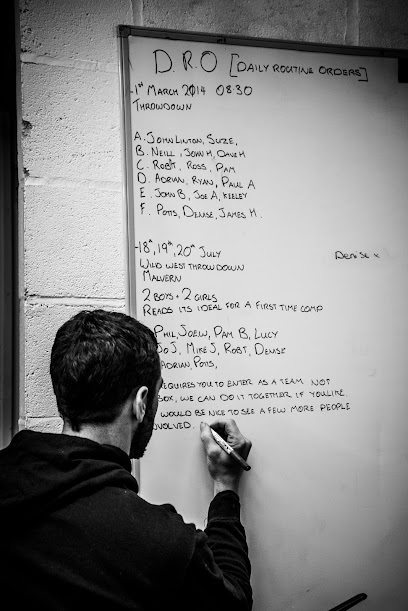 D.R.O [DAILY ROUTINE ORDERS]
-1st MARCH 2014 08:30
THROWDOWN
A. JOHN LINTON, SUZE,
B. NEILL, JOHN H, DAVE H
C. ROBT, ROSS, PAM
D. ADRIAN, RYAN, PAUL A
E. JOHN B, JOE A, KEELEY
F. POTTS, DENISE, JAMES H.
-18th, 19th, 20th JULY
Denise x
WILD WEST THROWDOWN
MALVERN
2 BOYS + 2 GIRLS
READS ITS IDEAL FOR A FIRST TIME COMP
PHIL, JOE W, PAM B, LUCY
JO J, MIKE J, ROBT, DENISE
ADRIAN, POTTS,
REQUIRES YOU TO ENTER AS A TEAM NOT
BOX, WE CAN DO IT TOGETHER IF YOU LIKE.
WOULD BE NICE TO SEE A FEW MORE PEOPLE
INVOLVED.